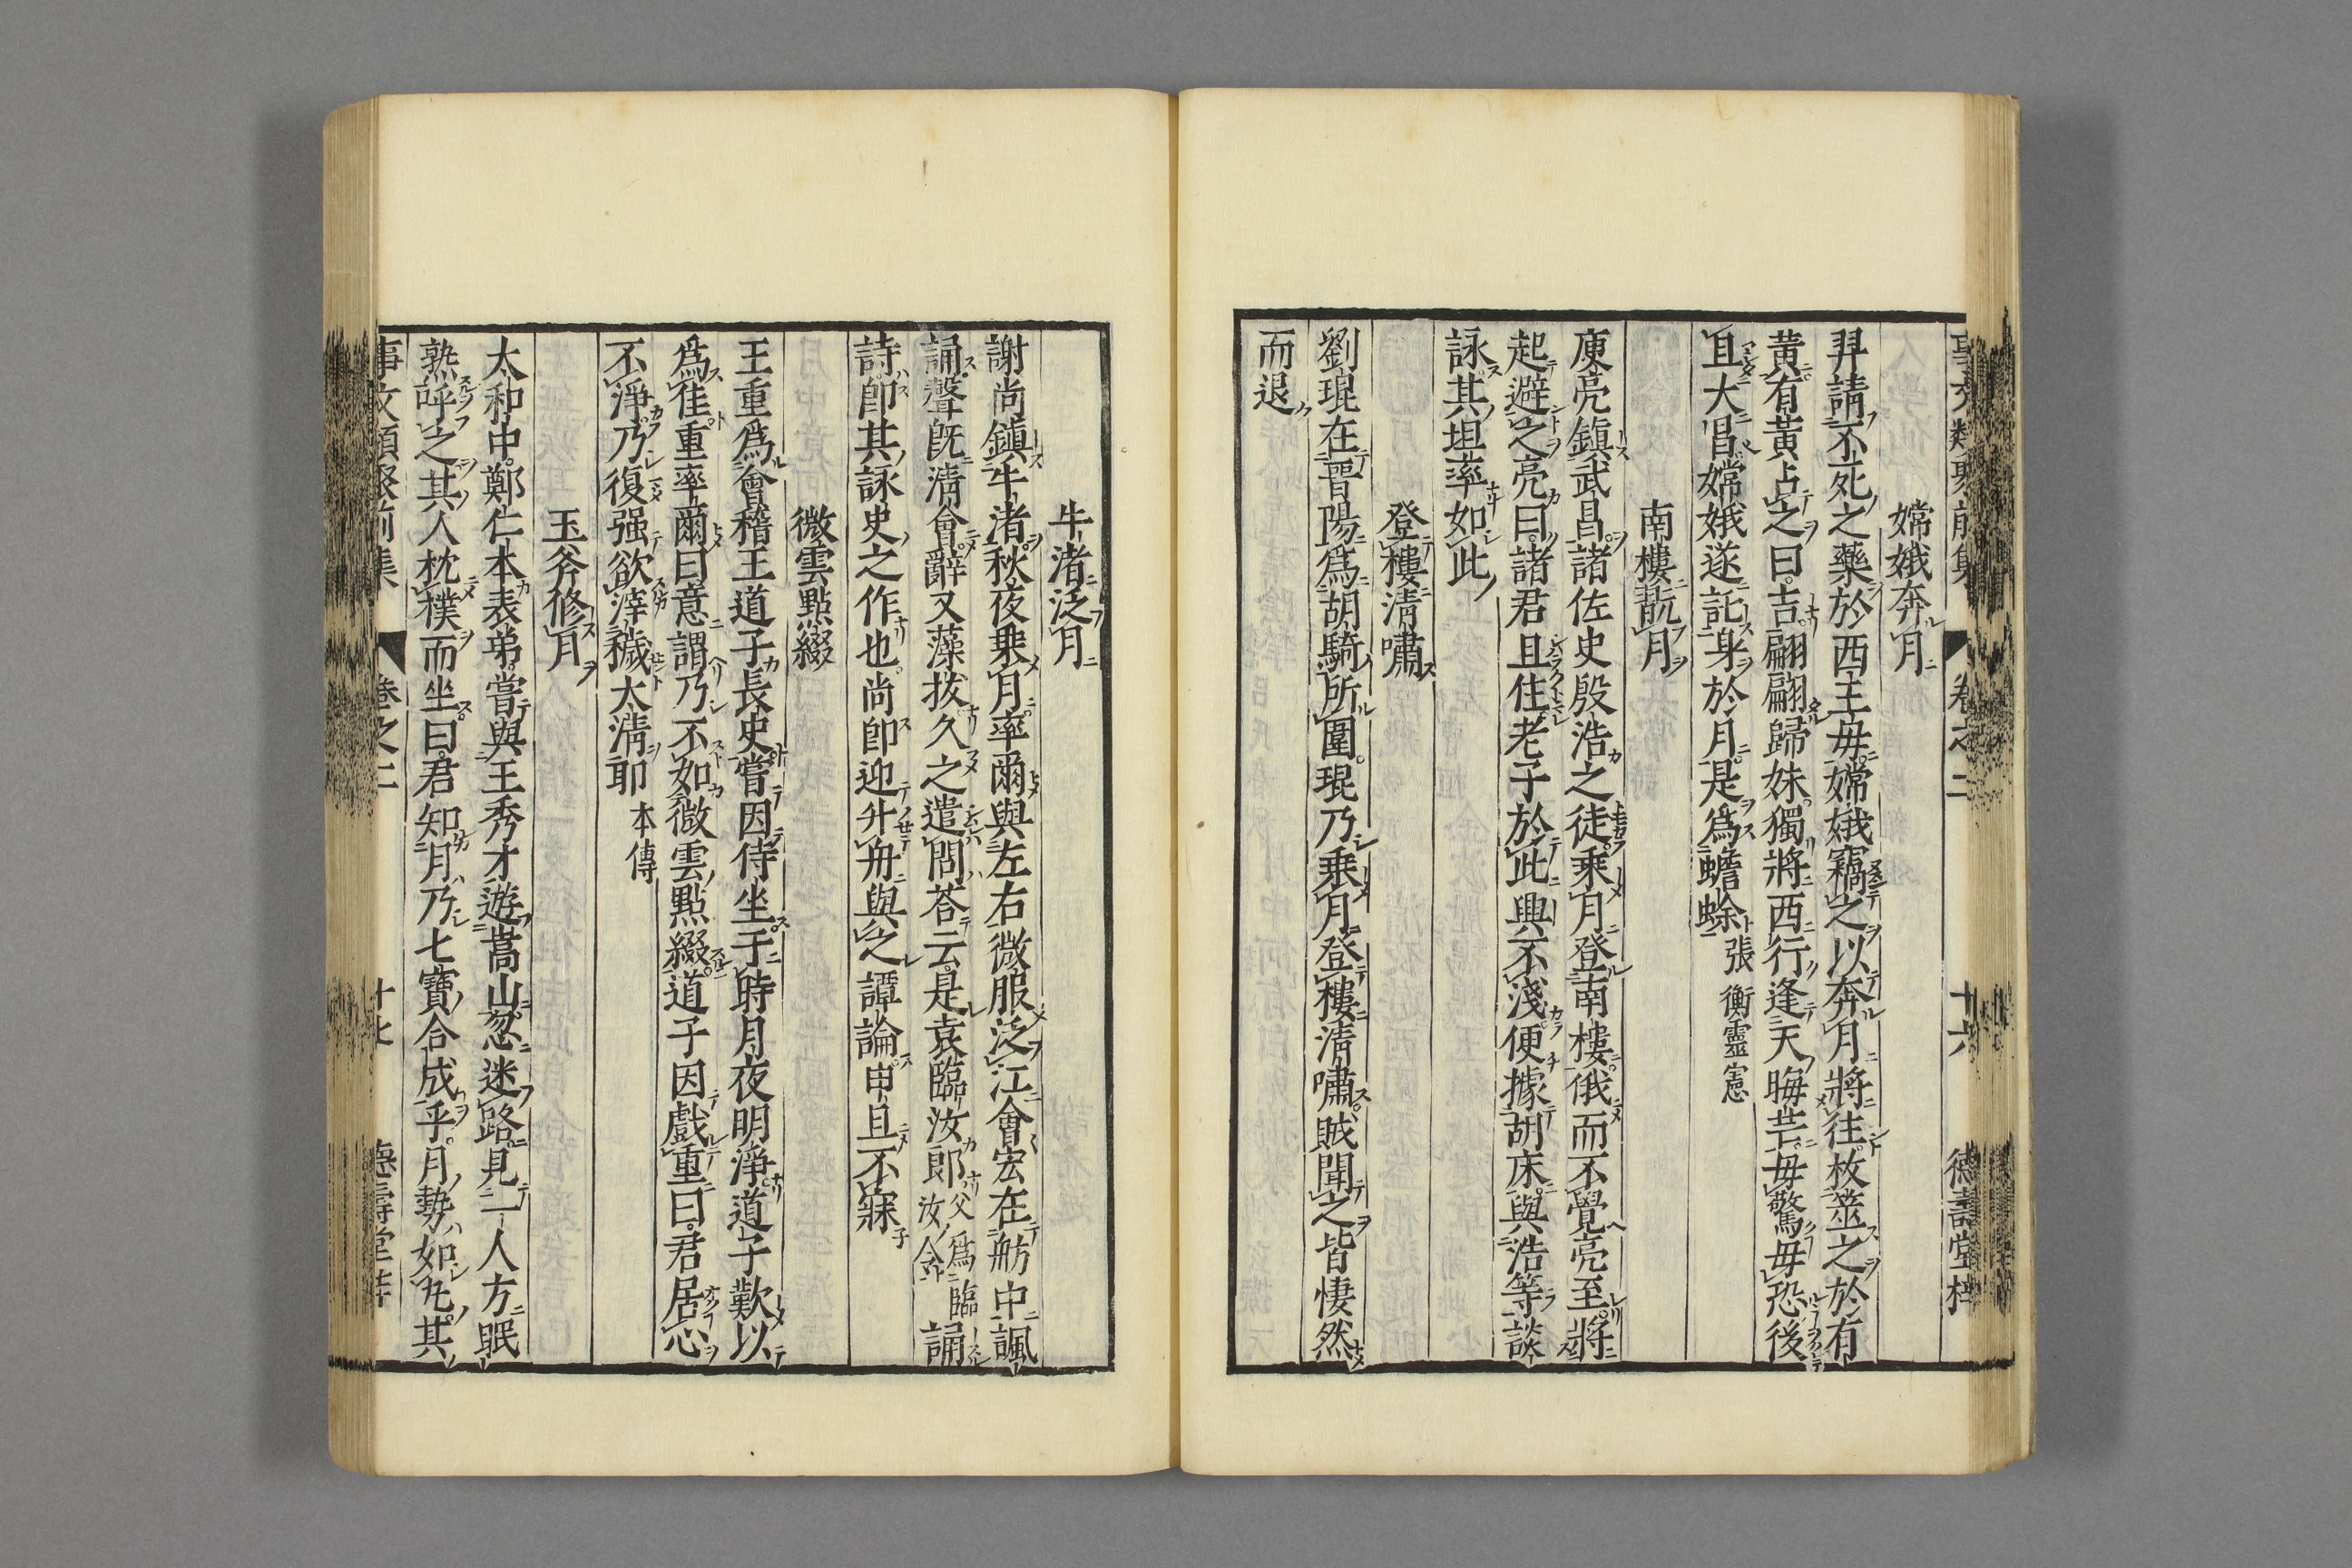 事文類聚前集 卷之二 十六 德壽堂梓
嫦娥奔月
羿請不死之藥於西王母嫦娥竊之以奔月將往枚筮之於有
黃有黃占之曰吉翩翩歸妹獨將西行逢天晦芒毋驚毋恐後
且大昌嫦娥遂託身於月是爲蟾蜍張衡靈憲
南樓翫月
庾亮鎮武昌諸佐史殷浩之徒乘月登南樓俄而不覺亮至將
起避之亮曰諸君且住老子於此興不淺便據胡床與浩等談
詠其坦率如此
登樓淸嘯
劉琨在晉陽爲胡騎所圍琨乃乘月登樓淸嘯賊聞之皆悽然
而退
牛渚泛月
謝尚鎮牛渚秋夜乘月率爾與左右微服泛江會宏在舫中諷
誦聲旣淸會辭又藻拔久之遣問荅云是袁臨汝郎父爲臨汝令誦
詩卽其詠史之作也尚卽迎升舟與之譚論申旦不寐
微雲點綴
王重爲會稽王道子長史嘗因侍坐于時月夜明淨道子歎以
爲佳重率爾曰意謂乃不如微雲點綴道子因戲重曰君居心
不淨乃復强欲滓穢太淸耶 本傳
玉斧修月
太和中鄭仁本表弟嘗與王秀才遊嵩山忽迷路見一人方眠
熟呼之其人枕襆而坐曰君知月乃七寶合成乎月勢如丸其
事文類聚前集 卷之二 十七 德壽堂梓